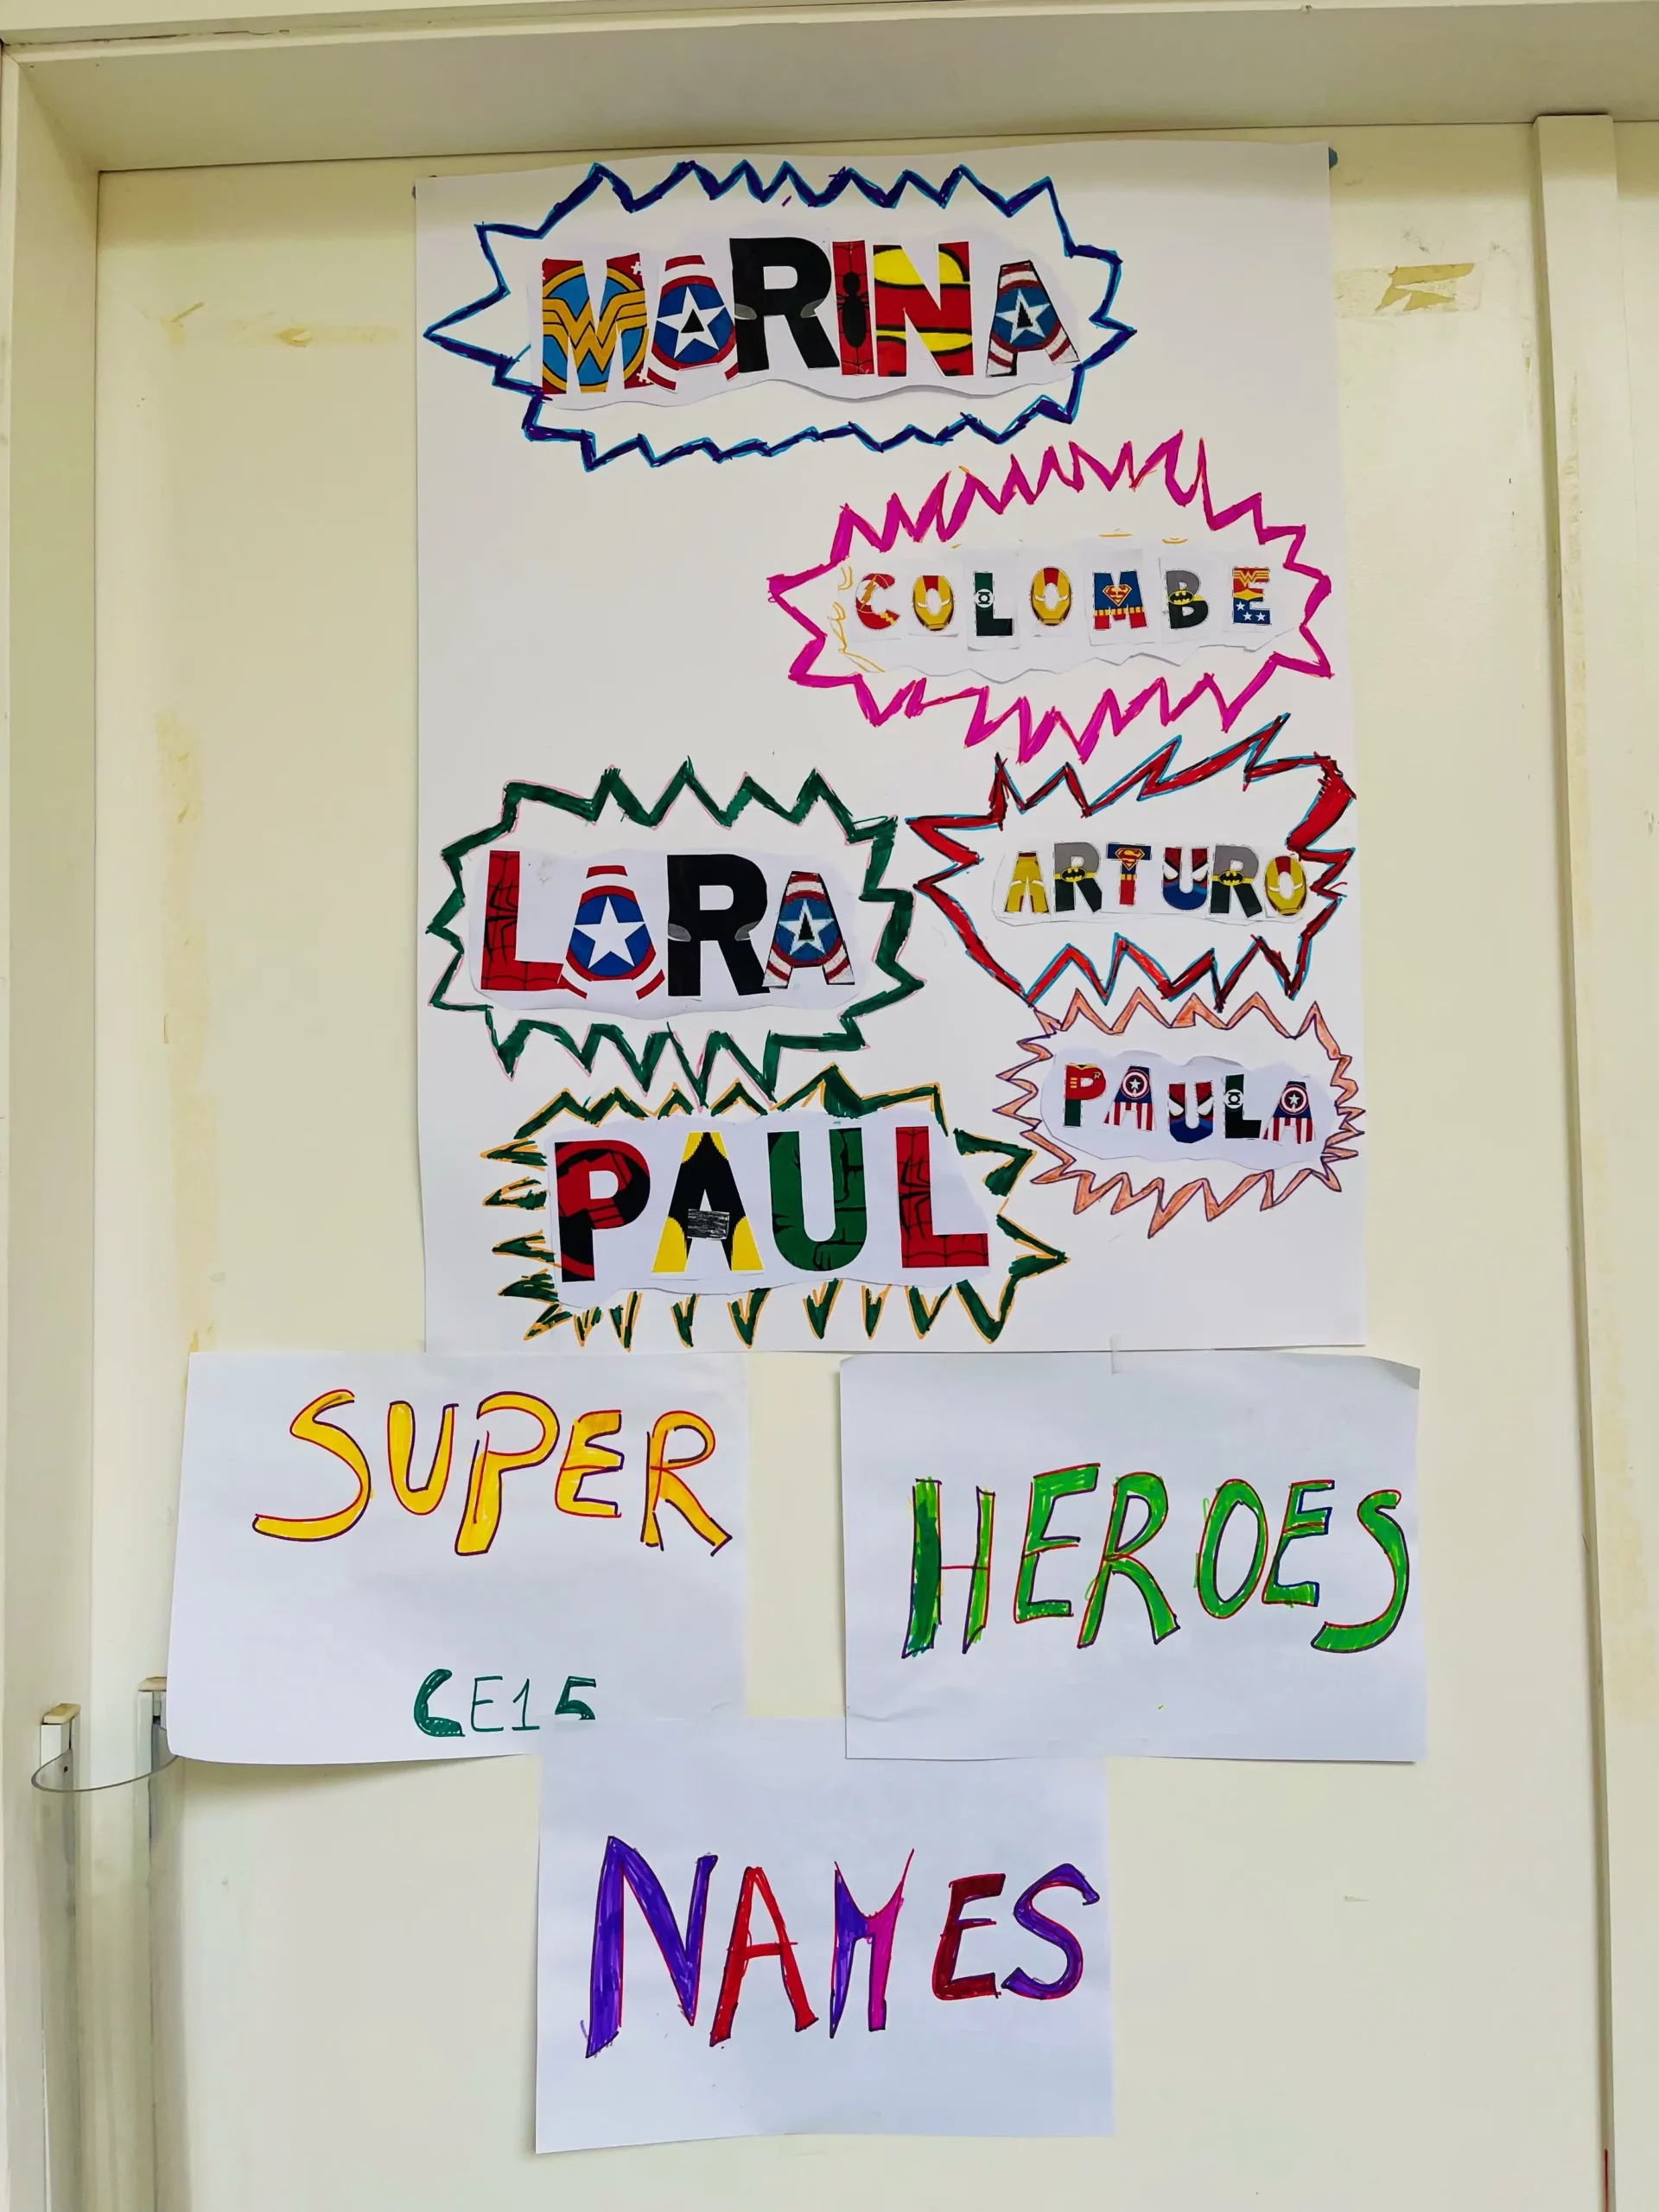 MARINA
COLOMBE
LARA
ARTURO
PAULA
PAUL
SUPER
HEROES
CE15
NAMES